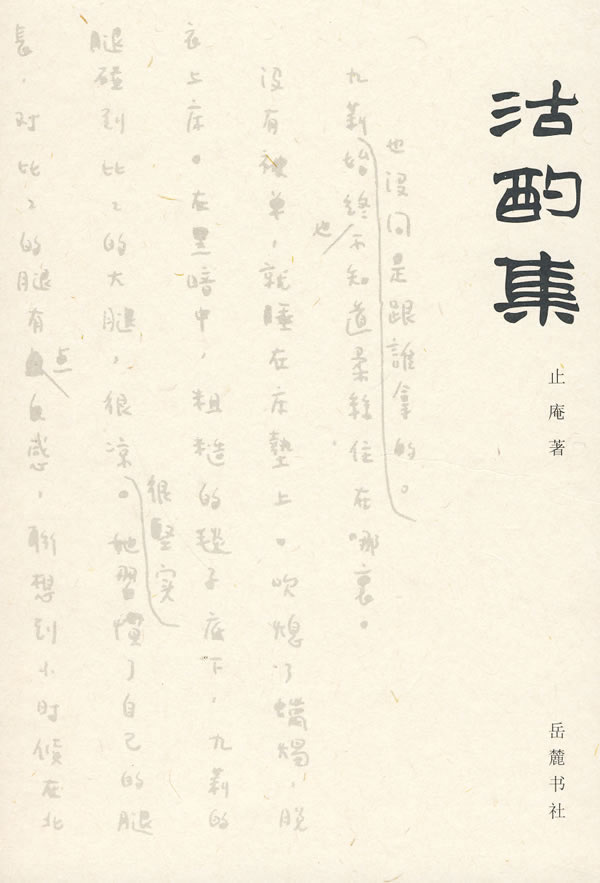 沽酌集
止庵著
岳麓书社
也没问是跟誰拿的。
九莉始終不知道柔絲住在哪裏。
也
没有被单，就睡在床墊上。吹熄了蠟燭，脫
衣上床。在黑暗中，粗糙的毯子底下，九莉的
很堅实
腿碰到比比的大腿，很凉。她習慣了自己的腿
点
長，对比比的腿有感，聯想到小时候在北